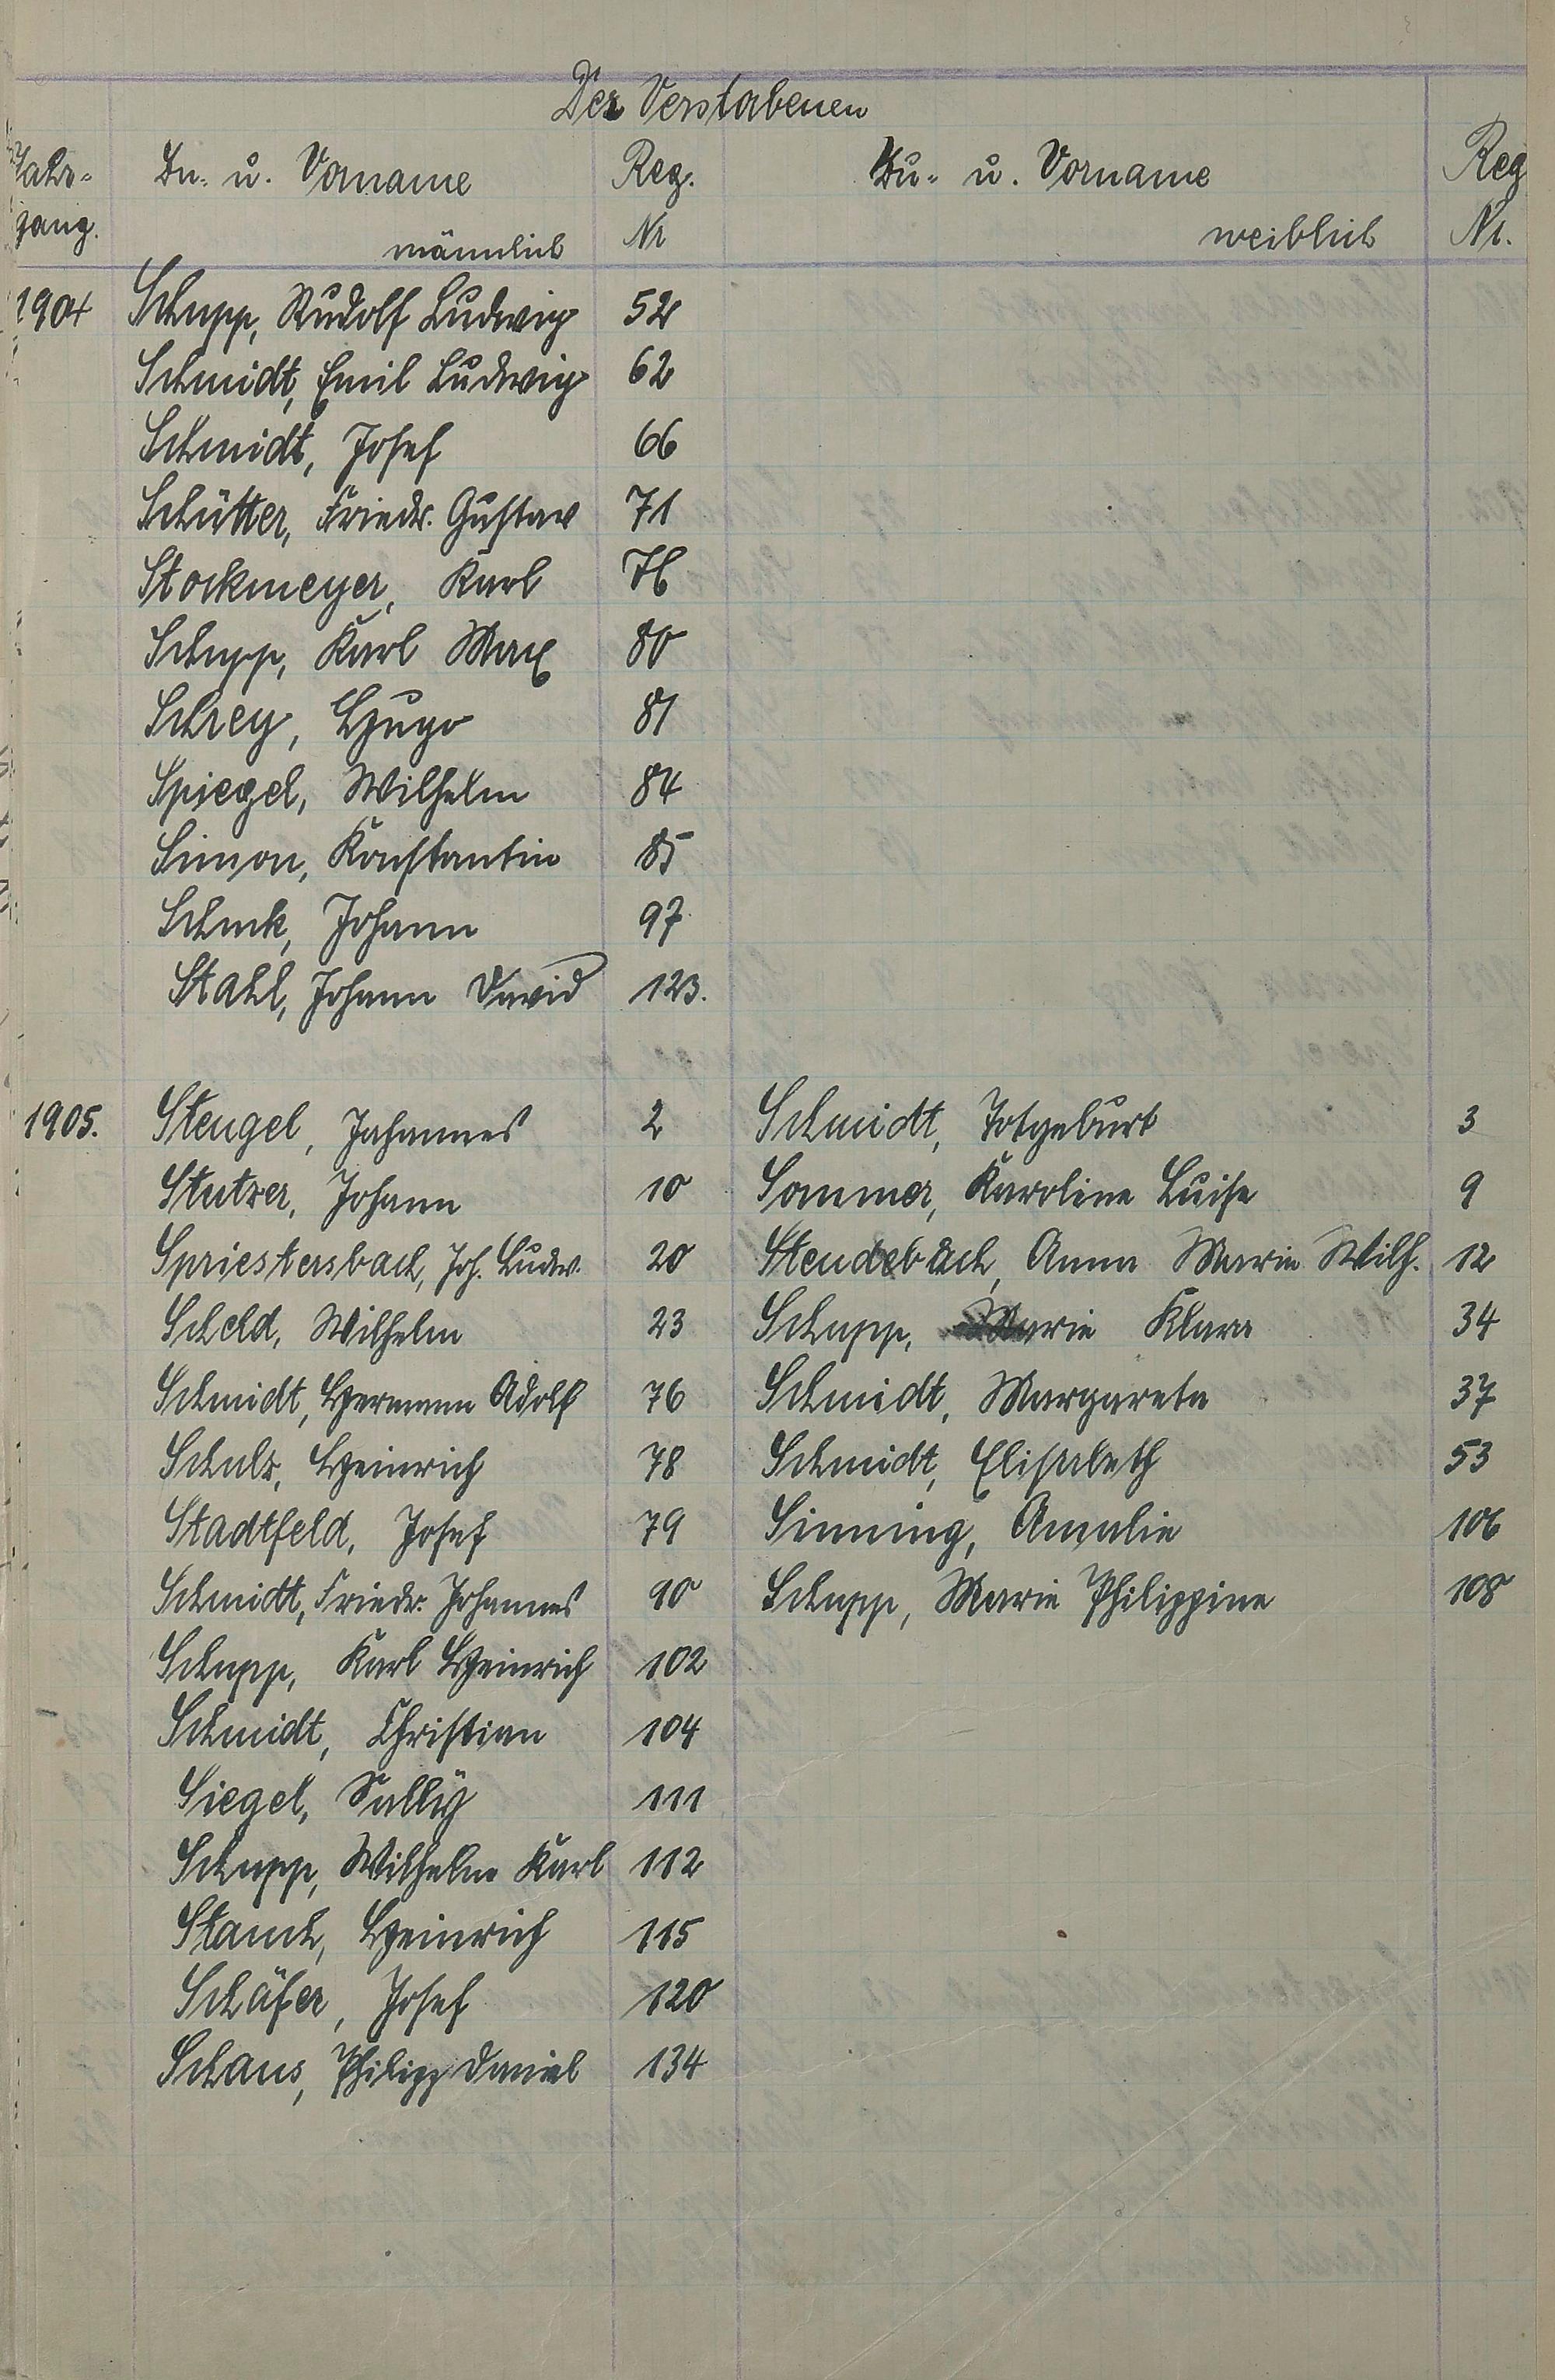 Der Verstorbenen
Jahr- Zu- u. Vorname Reg. Zu- u. Vorname Reg
gang. männlich Nr weiblich Nr.
1904 Schupp, Rudolf Ludwig 52
Schmidt, Emil Ludwig 62
Schmidt, Josef 66
Schütter, Friedr. Gustav 71
Stockmeyer, Karl 76
Schupp, Karl Max 80
Schrey, Hugo 81
Spiegel, Wilhelm 84
Simon, Konstantin 85
Johann 97
Stahl, Johann David 123.
1905. Stengel, Johannes 2 Schmidt, Totgeburt 3
Stutzer, Johann 10 Sommer, Karoline Luise 9
Spriestersbach, Joh. Ludw. 20 Steudebach, Anna Marie Wilh. 12
Scheld, Wilhelm 23 Schupp, Marie Klara 34
Schmidt, Hermann Adolf 76 Schmidt, Margareta 37
Schulz, Heinrich 78 Schmidt, Elisabeth 53
Stadtfeld, Josef 79 Sinning, Amalie 106
Schmidt, Friedr. Johannes 90 Schupp, Marie Philippine 108
Schupp, Karl Heinrich 102
Schmidt, Christian 104
Siegel, Sally 111
Schupp, Wilhelm Karl 112
Stamh, Heinrich 115
Schäfer, Josef 120
Schaus, Philipp Daniel 134